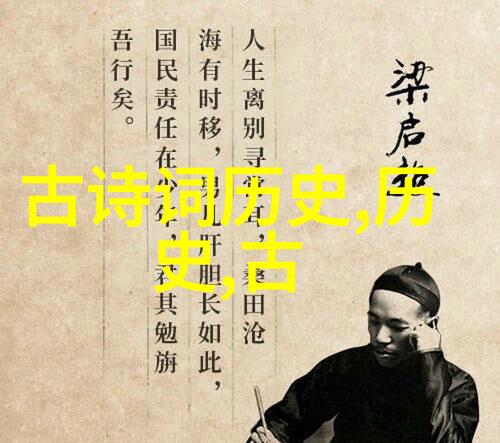 梁启超
人生离别寻常耳，桑田沧
海有时移，男儿肝胆长如此，
国民责任在少年，君其勉旃
吾行矣。
古诗词历史,历
史,古